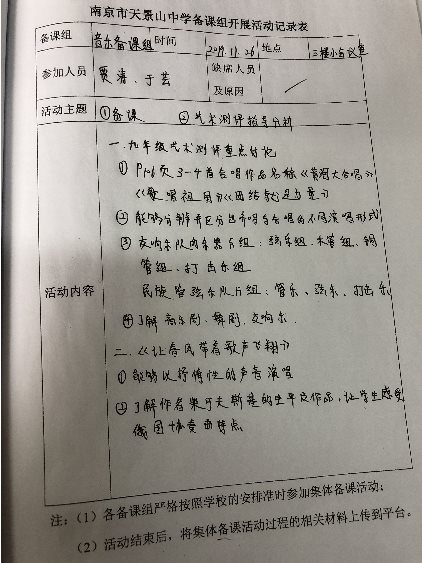 南京市天景山中学备课组开展活动记录表
备课组 音乐备课组 时间 2019.11.26 地点 三楼小会议室
参加人员 贾涛、于芸 缺席人员
及原因
活动主题 ①备课 ②艺术测评指导分析
活动内容
一、九年级艺术测评重点讨论
① P106页 3-4首合唱作品名称《黄河大合唱》
《歌唱祖国》《团结就是力量》
② 能够分辨并区分出齐唱与合唱的不同演唱形式
③ 交响乐队的乐器分组:弦乐组、木管组、铜
管组、打击乐组
民族管弦乐队分组:管乐、弦乐、打击乐
④ 了解音乐剧、舞剧、交响乐.
二、《让春风带着歌声飞翔》
① 能够以抒情性的声音演唱
② 了解作者柴可夫斯基的生平及作品,让学生感受
俄国协奏曲特点
注:(1)各备课组严格按照学校的安排准时参加集体备课活动;
(2)活动结束后,将集体备课活动过程的相关材料上传到平台。